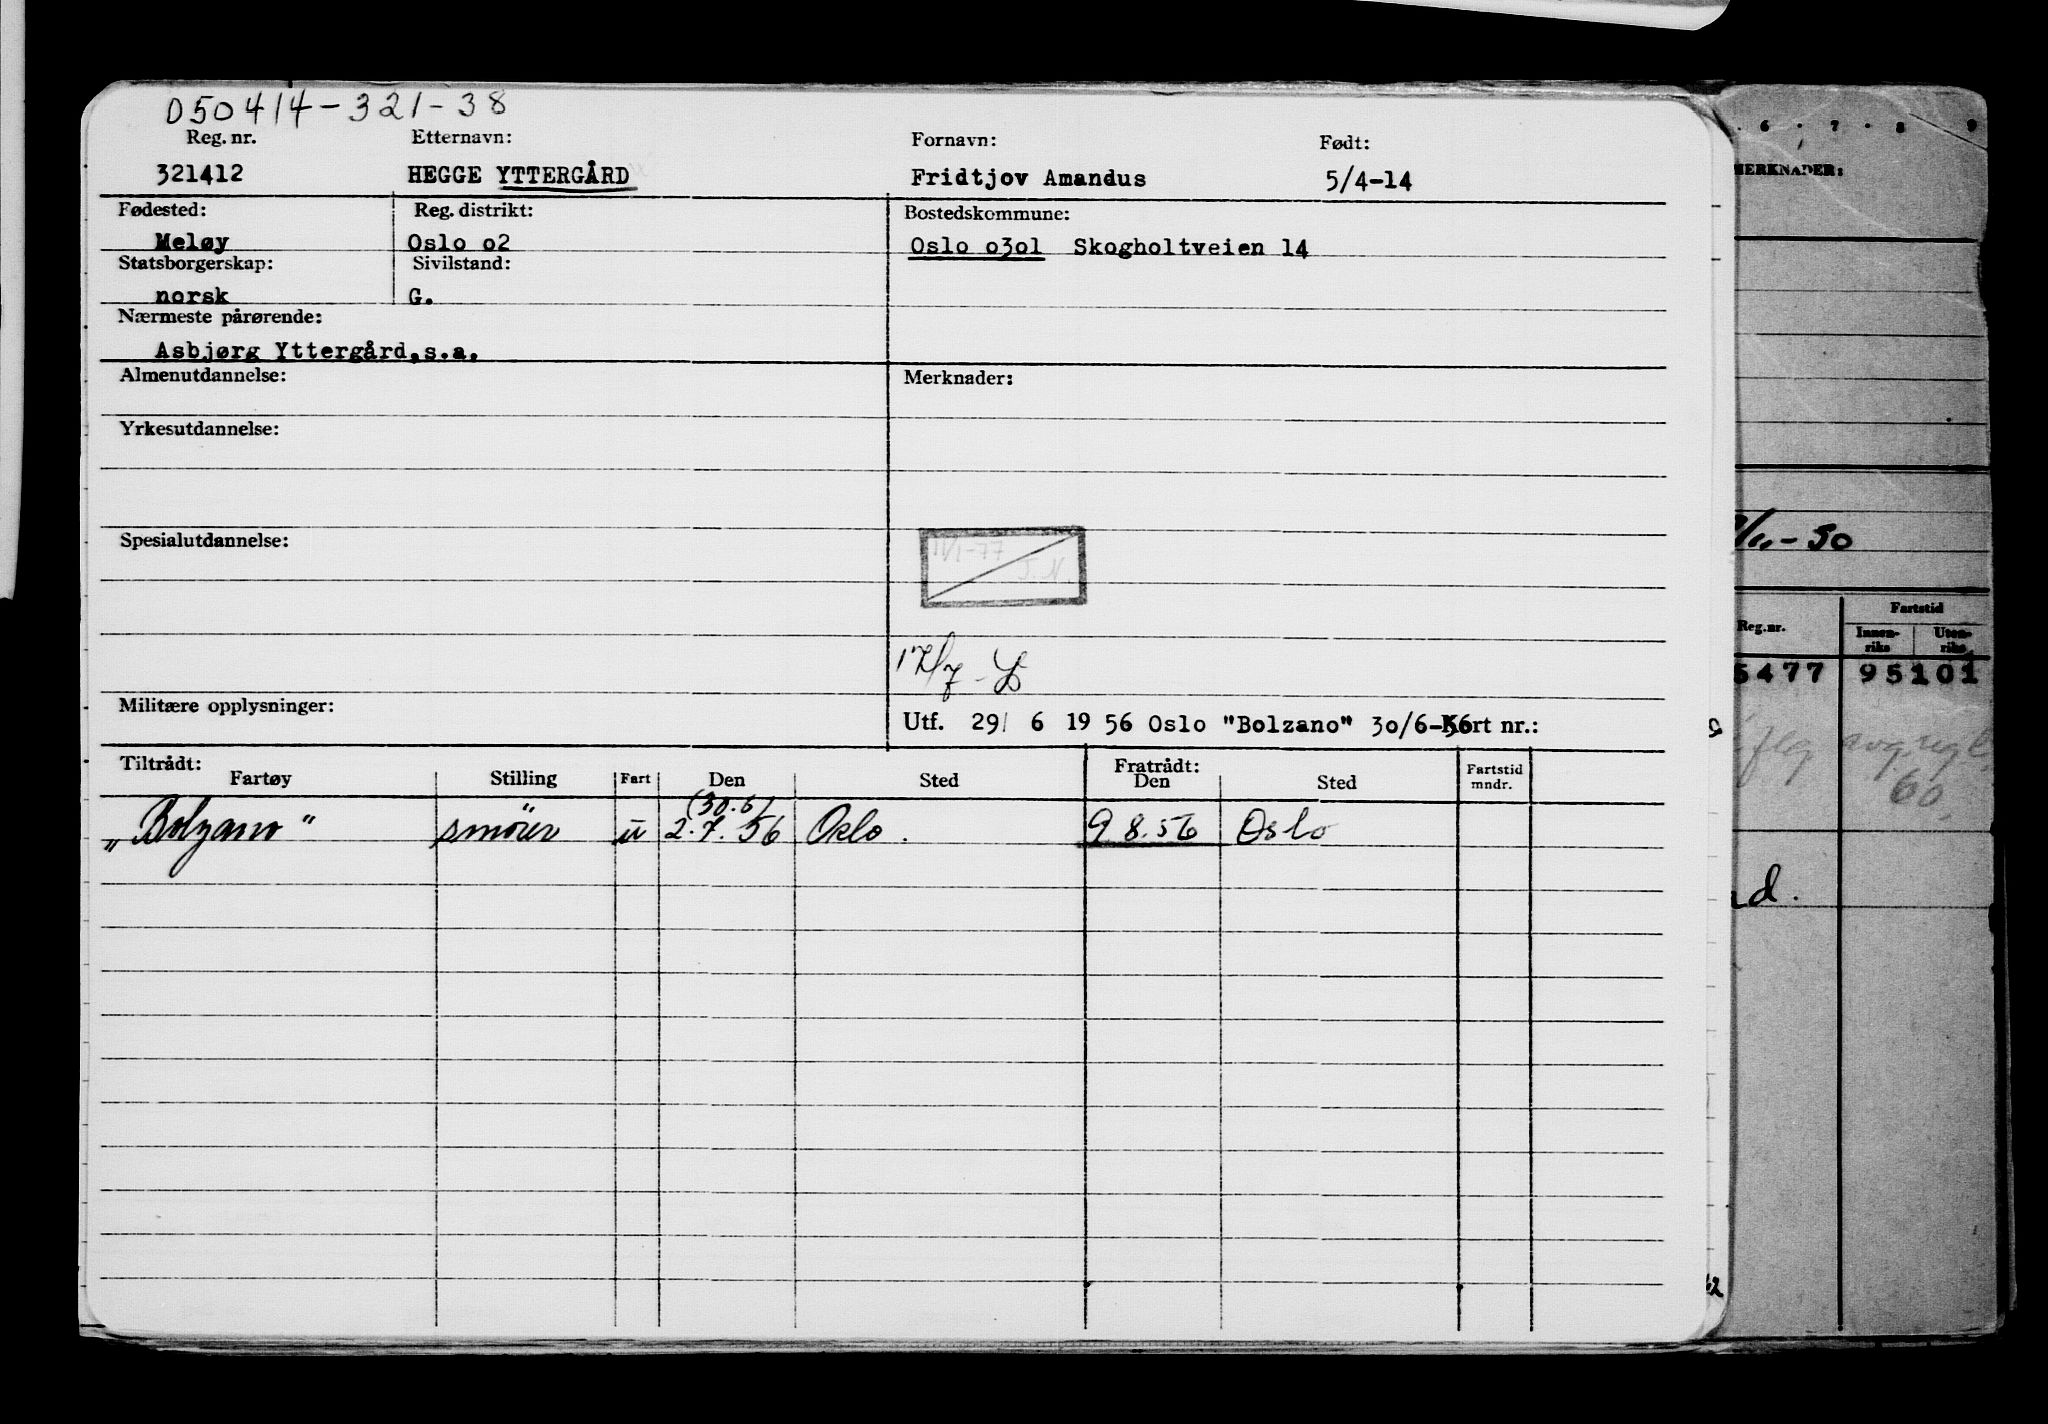 050414-321-38
Reg. nr. Etternavn: Fornavn: Født:
321412 HEGGE YTTERGÅRD Fridtjov Amandus 5/4-14
Fødested: Reg. distrikt: Bostedskommune:
Meløy Oslo o2 Oslo o3o1 Skogholtveien 14
Statsborgerskap: Sivilstand:
norsk G.
Nærmeste pårørende:
Asbjørg Yttergård,s.a.
Almenutdannelse: Merknader:
Yrkesutdannelse:
Spesialutdannelse:
11/1-77
J.N.
17/7 -
Militære opplysninger:
Utf. 29/ 6 19 56 Oslo "Bolzano" 30/6-56 Kort nr.:
Tiltrådt: Fratrådt:
Fartøy Stilling Fart Den Sted Den Sted Fartstid mndr.
(30.6)
„Bolzano" smörer u 2.7.56 Oslo. 9 8.56 Oslo
6 · 7 · 8 9
MERKNADER:
/11-50
Fartstid
Reg.nr. Innen-riks Uten-riks
5477 95101
avg.
60.
d.